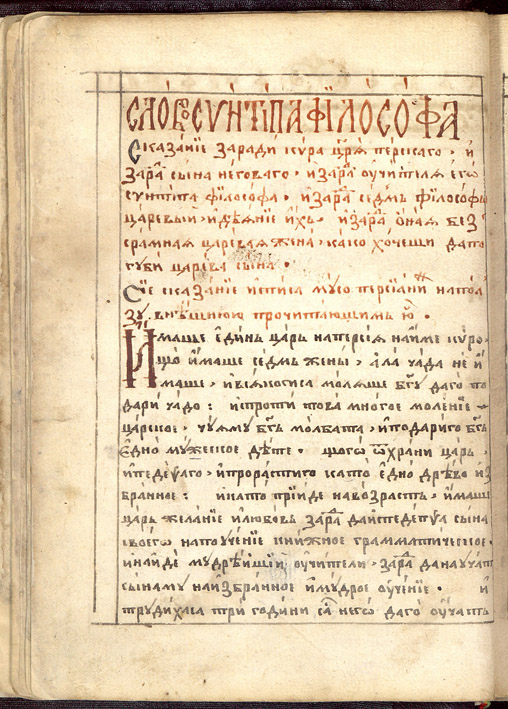 СЛОВО СѴНТІПА ФІЛОСОФА
Сказаніе заради кѵра цр҃ѧ перскаго · и
зарад̾ сына неговаго · и зарад̾ оучителѧ его
сѵнтипа філософа · и зарад̾ седмь філософы
царевыи · и дѣѧніе ихъ · и зарад̾ онаѧ без
срамнаѧ цареваѧ жена · како хочеши да по
губи царева сына ·
Сіе сказаніе списа мусо персіанинъ на пол
зу · прочитающимъ ю ·
Имаше единъ царь на персіѧ на име кѵро ·
що имаше седмь жены · ала чада не и
маше · и всѧкогиса молѧше бг҃у да го по
дари чадо : и спроти това многое моленіе
царское · чуѧму бг҃ъ молбата · и подариго бг҃ъ
едно мужеское дѣте · щогo ѿхрани царь ·
и педеѱаго · и прорастиго като едно дрѣво из
бранное : и като прійде на возрастъ · имаше
царь желаніе и любовъ зарад̾ да испедеѱа сына
своего на поученіе книжное грамматическое ·
и найде мудрѣйшій оучители · зарад̾ да научатъ
сына му на избранное и мудрое оученіе · и
трудихаса три години сас̾ него да го оучатъ